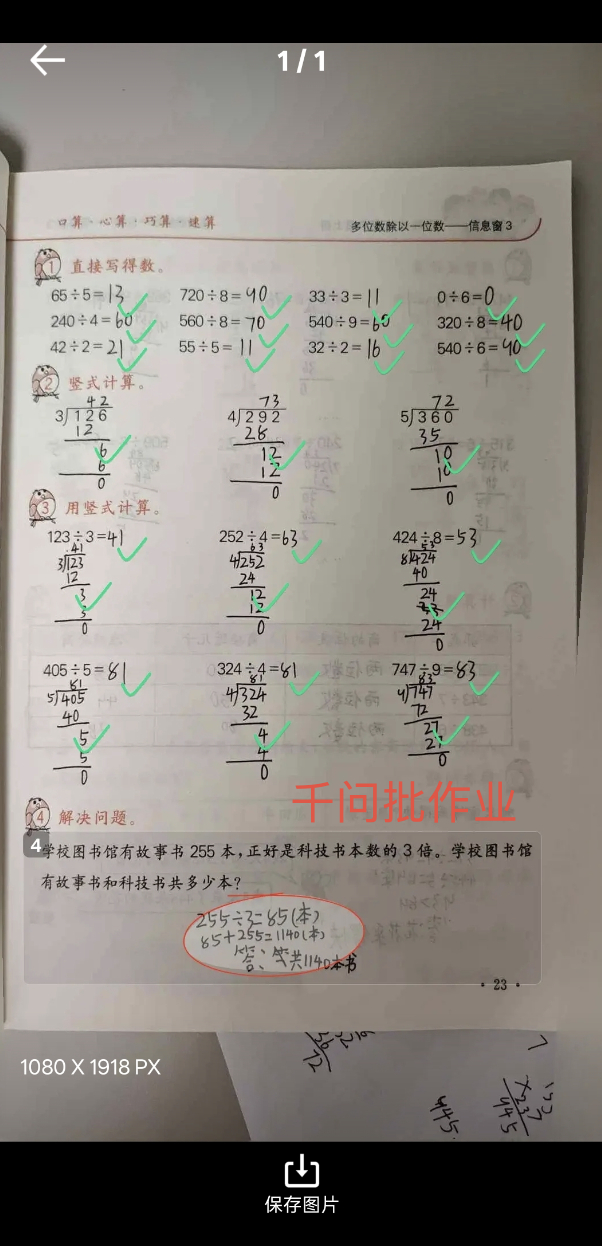 1/1
口算·心算·巧算·速算
多位数除以一位数——信息窗3
1 直接写得数。
65÷5=13 720÷8=90 33÷3=11 0÷6=0
240÷4=60 560÷8=70 540÷9=60 320÷8=40
42÷2=21 55÷5=11 32÷2=16 540÷6=90
2 竖式计算。
42 73 72
3 126 4 292 5 360
12 28 35
6 12 10
6 12 10
0 0 0
3 用竖式计算。
123÷3=41 252÷4=63 424÷8=53
41 63 53
3 123 4 252 8 424
12 24 40
3 12 24
3 12
0 0 24
0
405÷5=81 324÷4=81 747÷9=83
81 81 83
5 405 4 324 747
40 32 72
5 4 27
5 4
0 0 0
千问批作业
4 解决问题。
4
学校图书馆有故事书 255 本,正好是科技书本数的 3 倍。学校图书馆
有故事书和科技书共多少本?
255÷3=85(本)
85+255=1140(本)
答:共1140本书
·23·
1080 X 1918 PX
72
445
445
保存图片